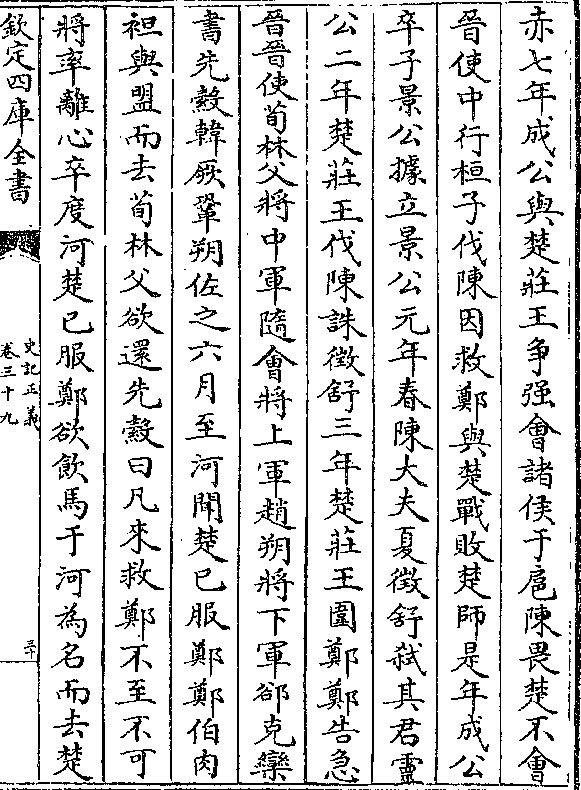 赤七年成公與楚莊王争强會諸侯于扈陳畏楚不會
晉使中行桓子伐陳因救鄭與楚戰敗楚師是年成公
卒子景公據立景公元年春陳大夫夏徵舒弑其君靈
公二年楚莊王伐陳誅徵舒三年楚莊王圍鄭鄭告急
晉晉使荀林父將中軍隨會將上軍趙朔將下軍郤克欒
書先縠韓厥鞏朔佐之六月至河聞楚已服鄭鄭伯肉
袒與盟而去荀林父欲還先縠曰凡來救鄭不至不可
將率離心卒度河楚已服鄭欲飲馬于河為名而去楚
欽定四庫全書
史記正義
卷三十九
三十